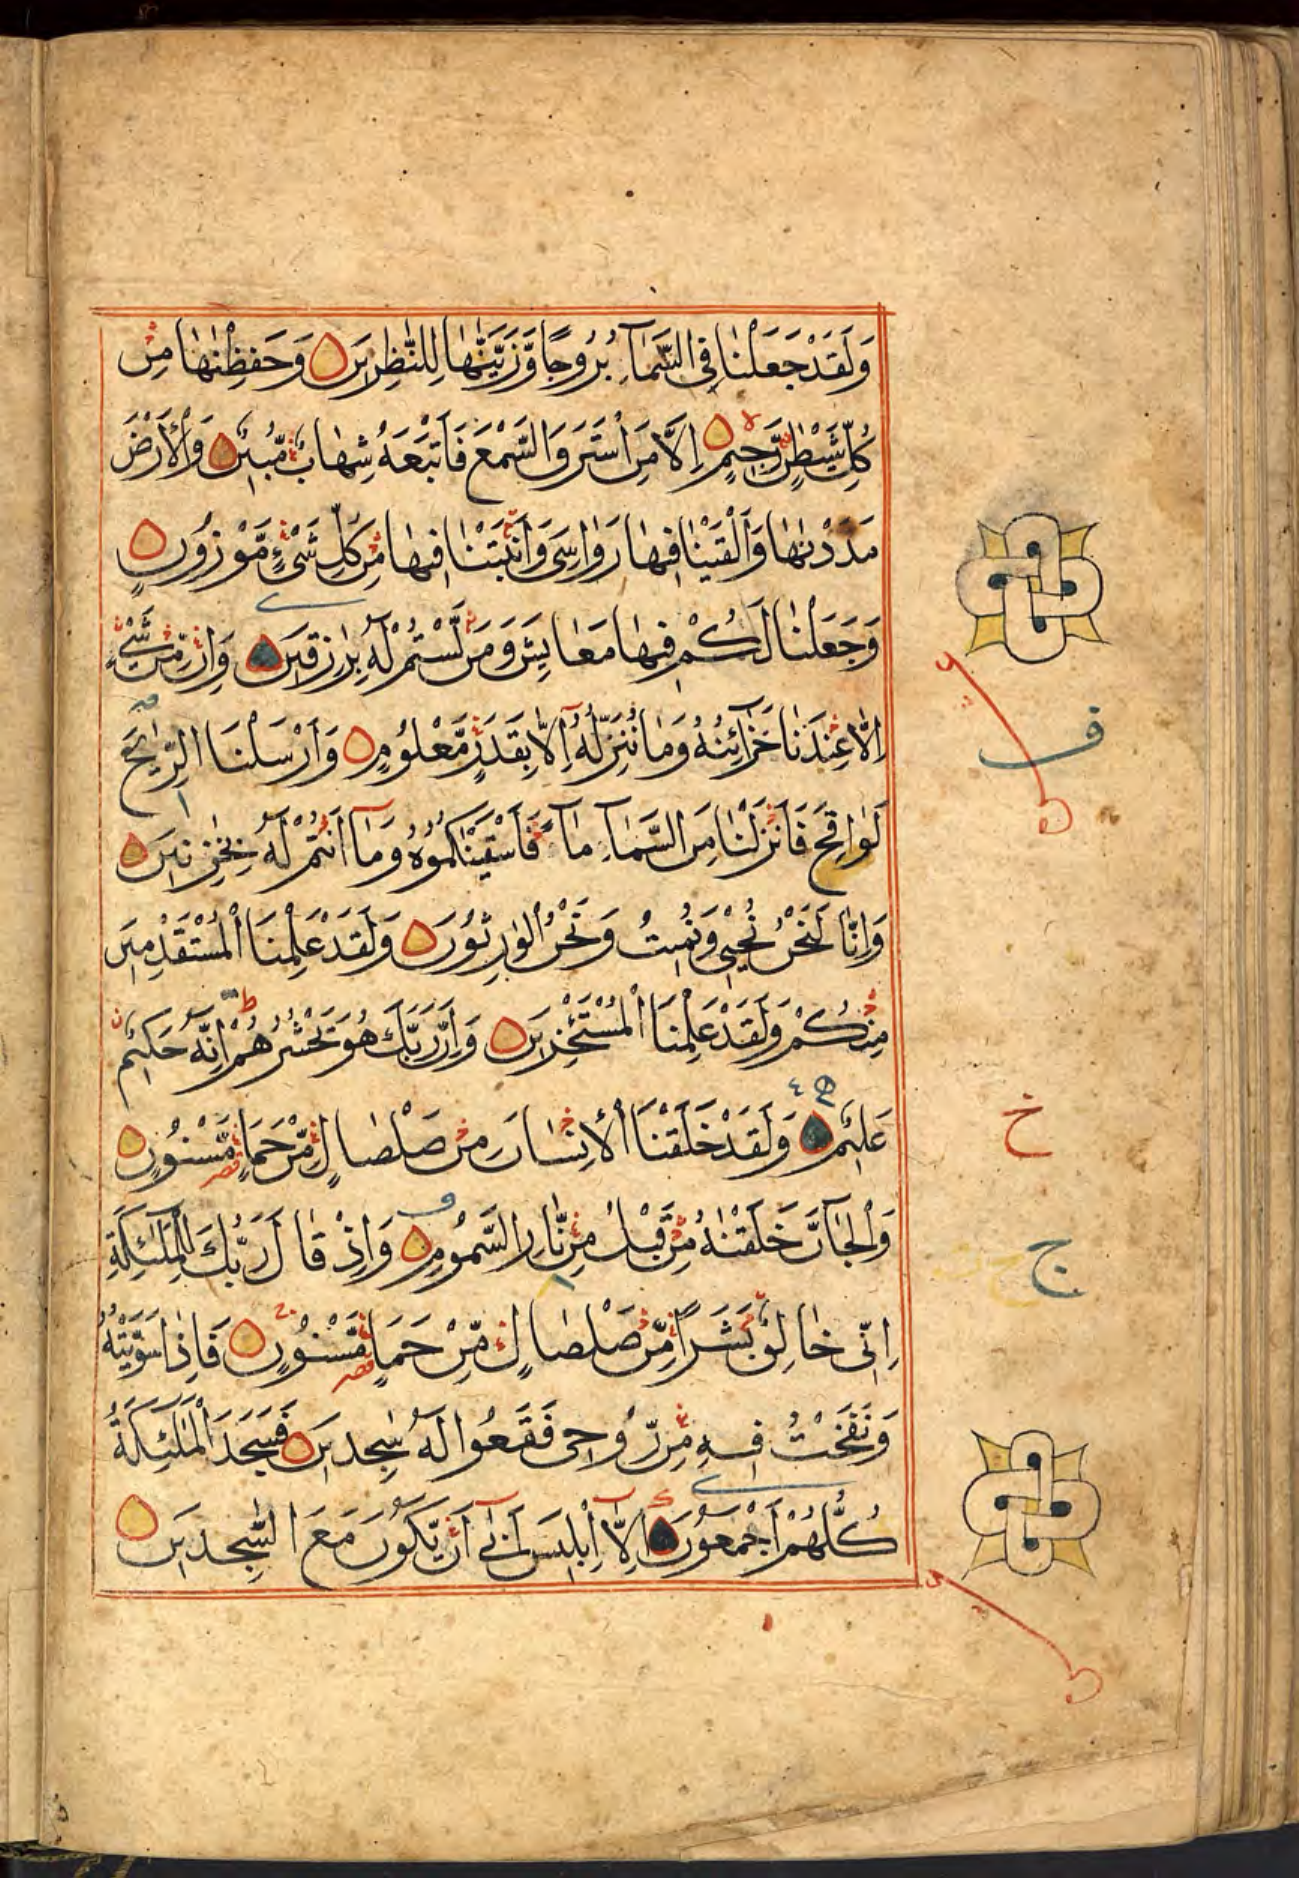 وَلَقَدْ جَعَلْنٰا فِی السَّمَآءِ بُرُوجًا وَّزَیَّنّٰهٰا لِلنّٰظِرِینَ وَحَفِظْنٰهٰا مِنْ
كُلِّ شَیْطٰنٍ رَّجِیمٍ اِلَّا مَنِ اسْتَرَقَ السَّمْعَ فَاَتْبَعَهُ شِهٰابٌ مُّبِینٌ وَالْاَرْضَ
مَدَدْنٰهٰا وَاَلْقَیْنٰا فِیهٰا رَوٰاسِیَ وَاَنْبَتْنٰا فِیهٰا مِنْ كُلِّ شَیْءٍ مَّوْزُونٍ
وَجَعَلْنٰا لَكُمْ فِیهٰا مَعٰایِشَ وَمَنْ لَّسْتُمْ لَهُ بِرٰزِقِینَ وَاِنْ مِّنْ شَیْءٍ
اِلّٰا عِنْدَنٰا خَزَآئِنُهُ وَمٰا نُنَزِّلُهُ اِلّٰا بِقَدَرٍ مَّعْلُومٍ وَاَرْسَلْنَا الرِّیٰحَ
لَوٰاقِحَ فَاَنْزَلْنٰا مِنَ السَّمَآءِ مَآءً فَاَسْقَیْنٰاكُمُوهُ وَمَآ اَنْتُمْ لَهُ بِخٰزِنِینَ
وَاِنّٰا لَنَحْنُ نُحْیِی وَنُمِیتُ وَنَحْنُ الْوٰرِثُونَ وَلَقَدْ عَلِمْنَا الْمُسْتَقْدِمِینَ
مِنْكُمْ وَلَقَدْ عَلِمْنَا الْمُسْتَئْخِرِینَ وَاِنَّ رَبَّكَ هُوَ یَحْشُرُهُمْ اِنَّهُ حَكِیمٌ
عَلِیمٌ وَلَقَدْ خَلَقْنَا الْاِنْسٰانَ مِنْ صَلْصٰالٍ مِّنْ حَمَاٍ مَّسْنُونٍ
وَالْجَآنَّ خَلَقْنٰهُ مِنْ قَبْلُ مِنْ نّٰارِ السَّمُومِ وَاِذْ قٰالَ رَبُّكَ لِلْمَلٰئِكَةِ
اِنِّی خٰالِقٌ بَشَرًا مِّنْ صَلْصٰالٍ مِّنْ حَمَاٍ مَّسْنُونٍ فَاِذٰا سَوَّیْتُهُ
وَنَفَخْتُ فِیهِ مِنْ رُّوحِی فَقَعُوا لَهُ سٰجِدِینَ فَسَجَدَ الْمَلٰئِكَةُ
كُلُّهُمْ اَجْمَعُونَ اِلّٰا اِبْلِیسَ اَبٰی اَنْ یَّكُونَ مَعَ السّٰجِدِینَ
ف
خ
ج